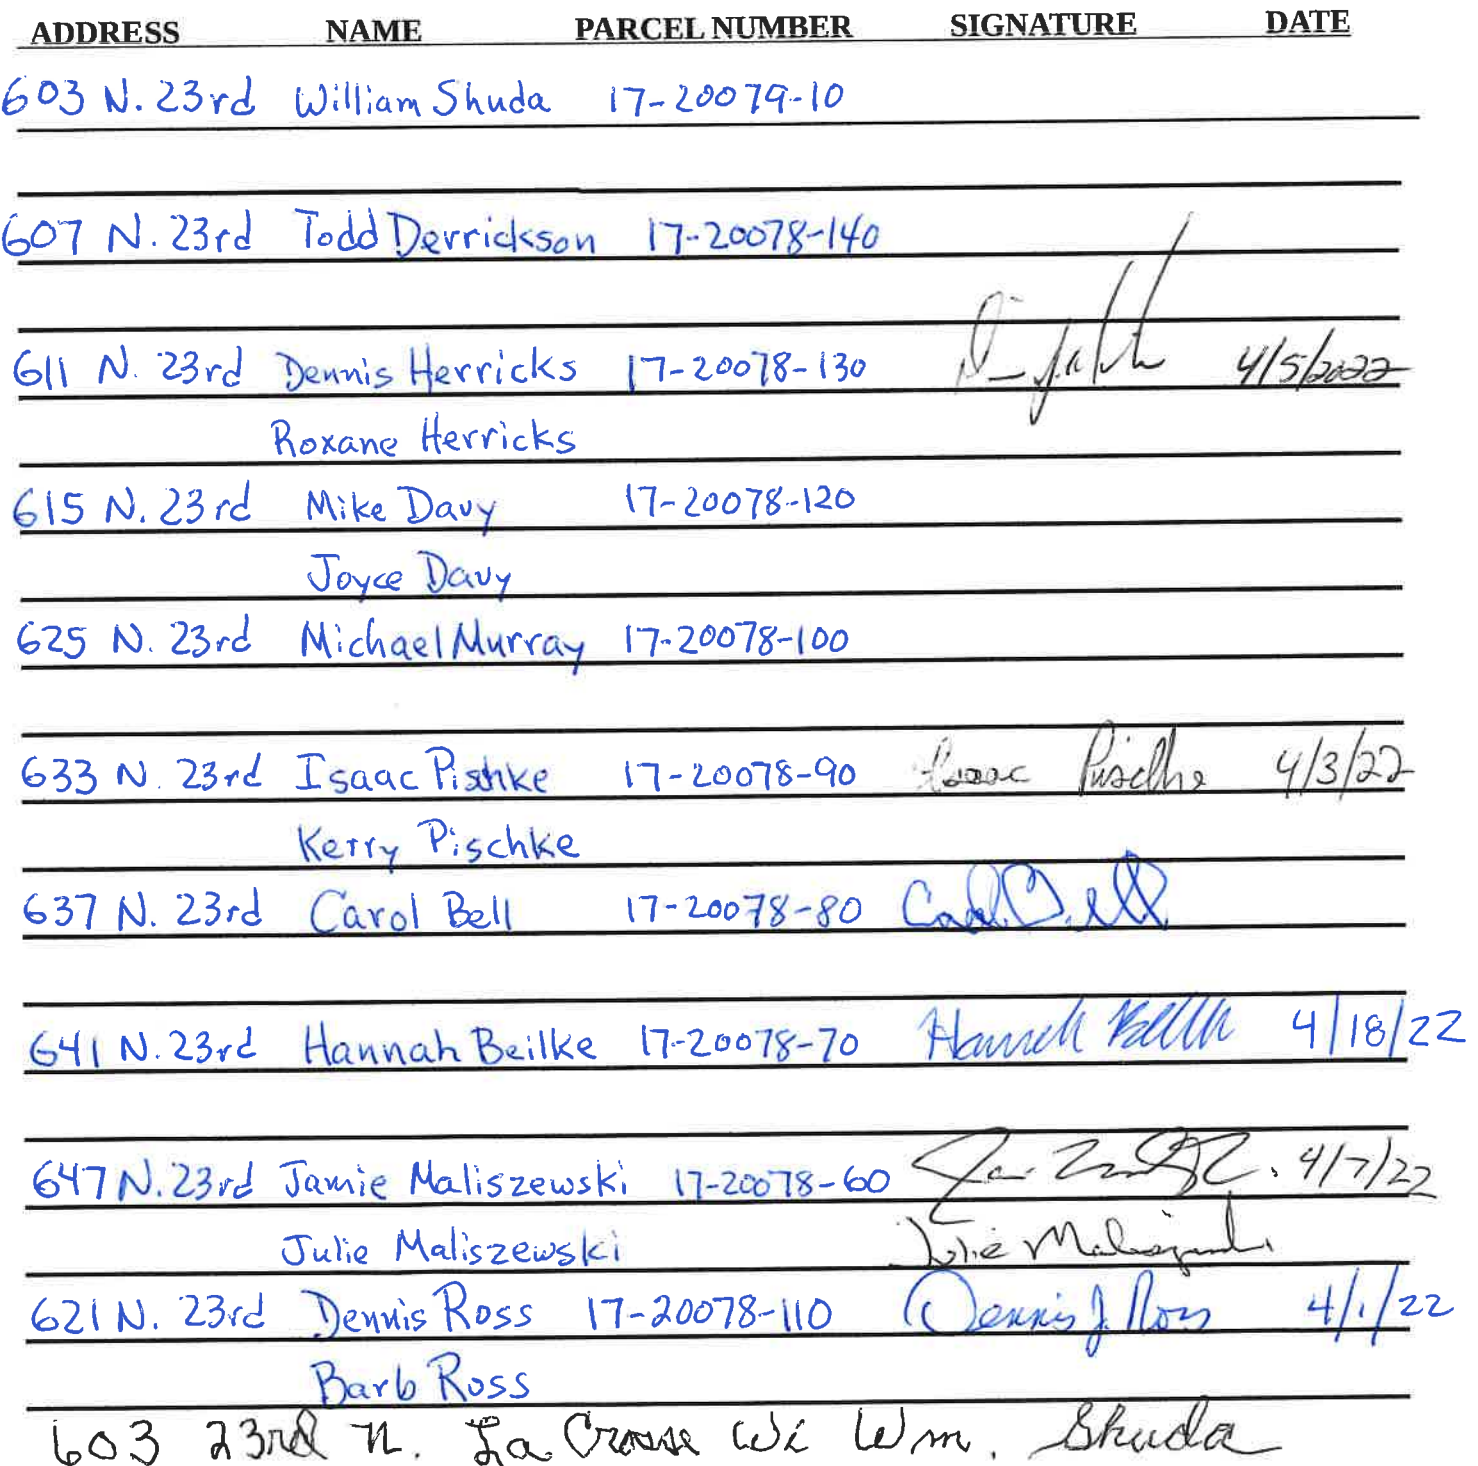 ADDRESS NAME PARCEL NUMBER SIGNATURE DATE
603 N. 23rd William Shuda 17-20079-10
607 N. 23rd Todd Derrickson 17-20078-140
611 N. 23rd Dennis Herricks 17-20078-130 4/5/2022
Roxane Herricks
615 N. 23rd Mike Davy 17-20078-120
Joyce Davy
625 N. 23rd Michael Murray 17-20078-100
633 N. 23rd Isaac Pishke 17-20078-90 Isaac Pischke 4/3/22
Kerry Pischke
637 N. 23rd Carol Bell 17-20078-80 Carol Bell
641 N. 23rd Hannah Beilke 17-20078-70 Hannah Beilke 4/18/22
647 N. 23rd Jamie Maliszewski 17-20078-60 4/7/22
Julie Maliszewski Julie Maliszewski
621 N. 23rd Dennis Ross 17-20078-110 Dennis J. Ross 4/1/22
Barb Ross
603 23rd N. La Crosse Wi Wm. Shuda